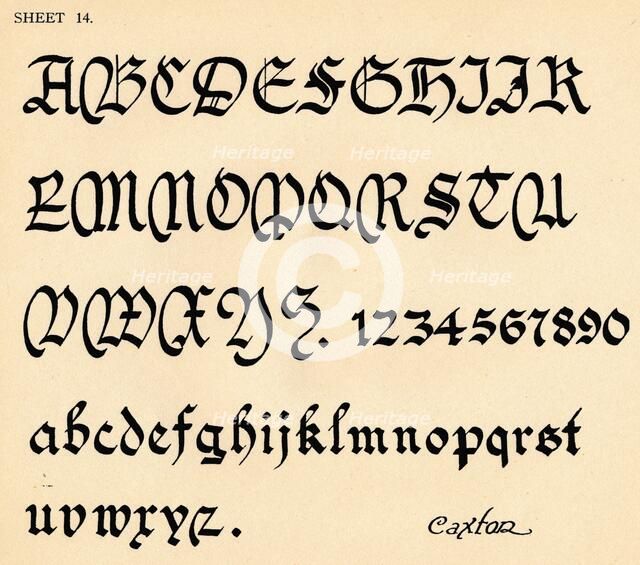 SHEET 14.
ABCDEFGHIJK
LMNOPQRSTU
VWXYZ. 1234567890
abcdefghijklmnopqrst
uvwxyz.
Caxton
Heritage Heritage
Heritage Heritage
Heritage Heritage
©